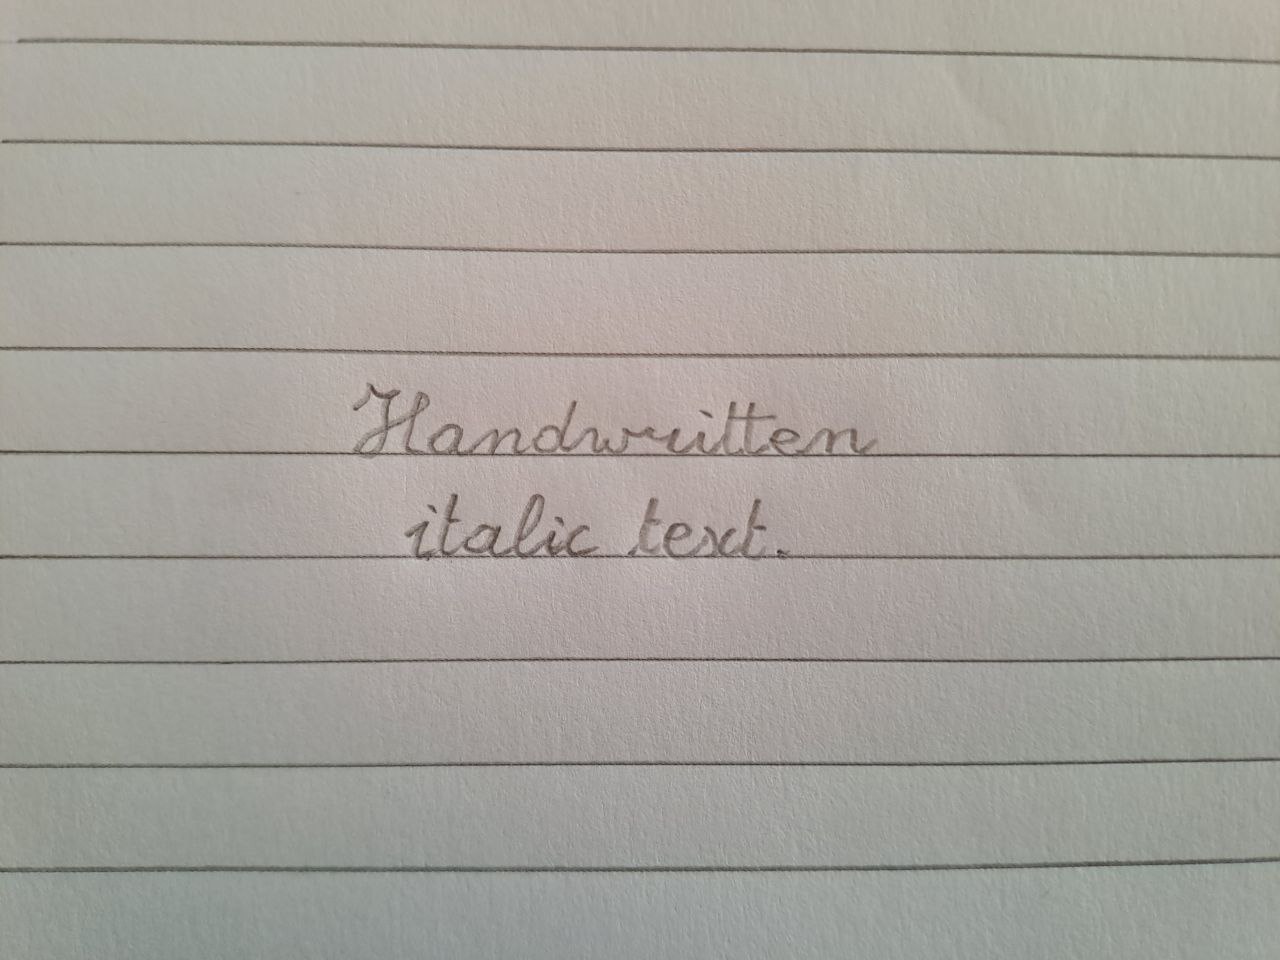 Handwritten
italic text.